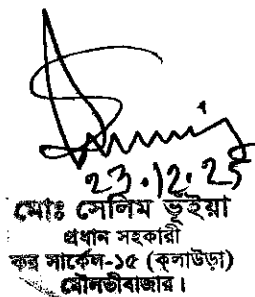 23.12.25
মোঃ সেলিম ভূইয়া
প্রধান সহকারী
কর সার্কেল-১৫ (কুলাউড়া)
মৌলভীবাজার।